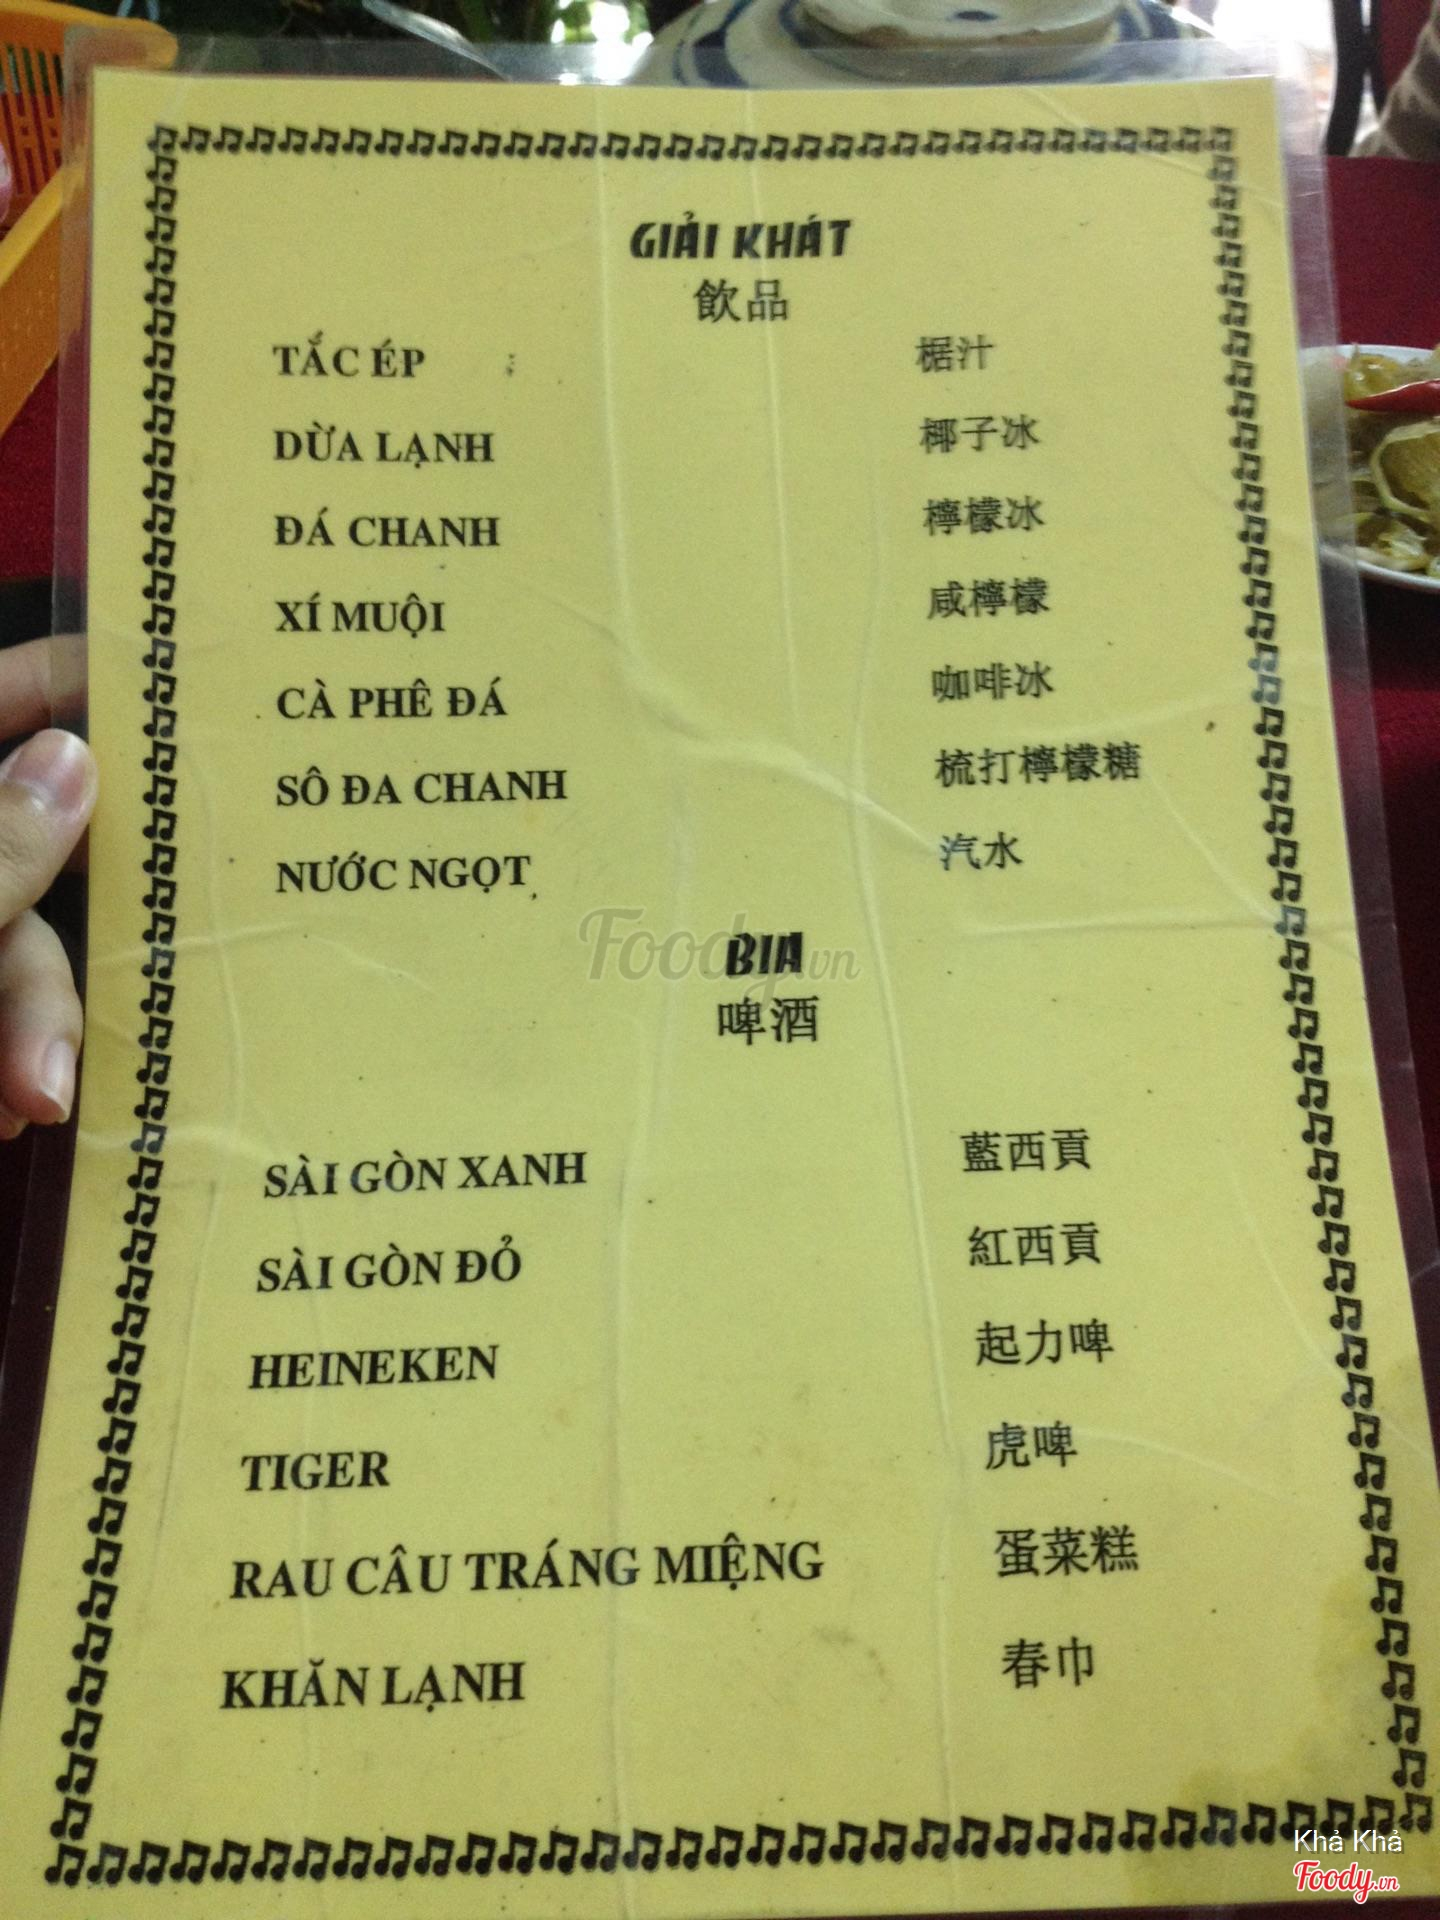 GIẢI KHÁT
飲品
TẮC ÉP 椐汁
DỪA LẠNH 椰子冰
ĐÁ CHANH 檸檬冰
XÍ MUỘI 咸檸檬
CÀ PHÊ ĐÁ 咖啡冰
SÔ ĐA CHANH 梳打檸檬糖
NƯỚC NGỌT 汽水
Foody.vn
BIA
啤酒
SÀI GÒN XANH 藍西貢
SÀI GÒN ĐỎ 紅西貢
HEINEKEN 起力啤
TIGER 虎啤
RAU CÂU TRÁNG MIỆNG 蛋菜糕
KHĂN LẠNH 春巾
Khả Khả
Foody.vn